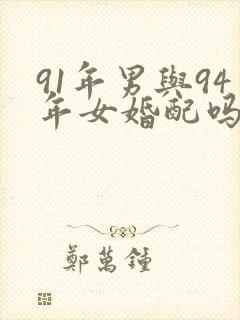 91年男與94
年女婚配吗
鄭萬鍾